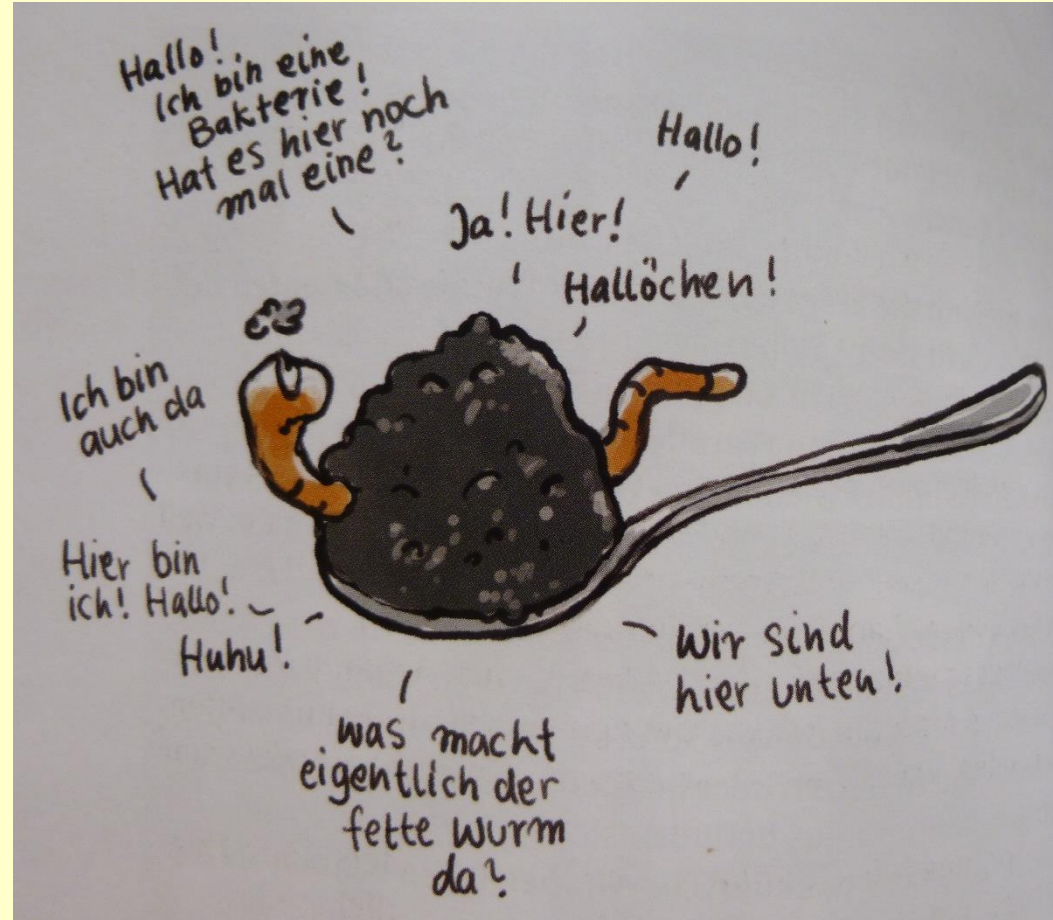 Hallo!
Ich bin eine
Bakterie!
Hat es hier noch
mal eine?
Hallo!
Ja! Hier!
Hallöchen!
Ich bin
auch da
Hier bin
ich! Hallo!
Huhu!
Wir sind
hier unten!
was macht
eigentlich der
fette Wurm
da?